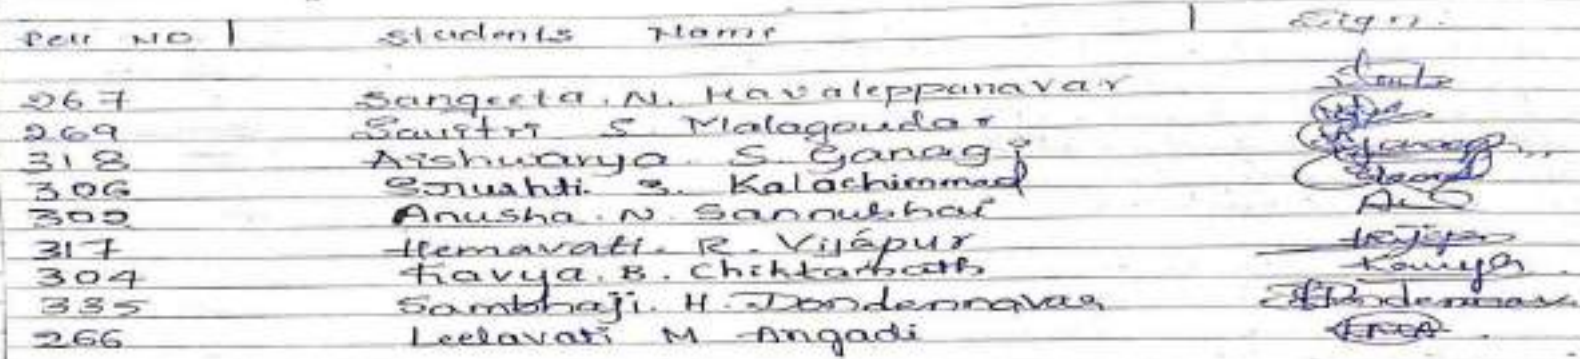 Roll NO. Students Name Sign.
267 Sangeeta. N. Havaleppanavar
269 Savitri S Malagoudar
318 Aishwarya S. Ganagi
306 Srushti. S. Kalachimmad
302 Anusha. N. Sannubhai
317 Hemavati. R. Vijapur
304 Kavya. B. Chikkamath Kavya
335 Sambhaji. H. Dondennavar
266 Leelavati M Angadi LMA